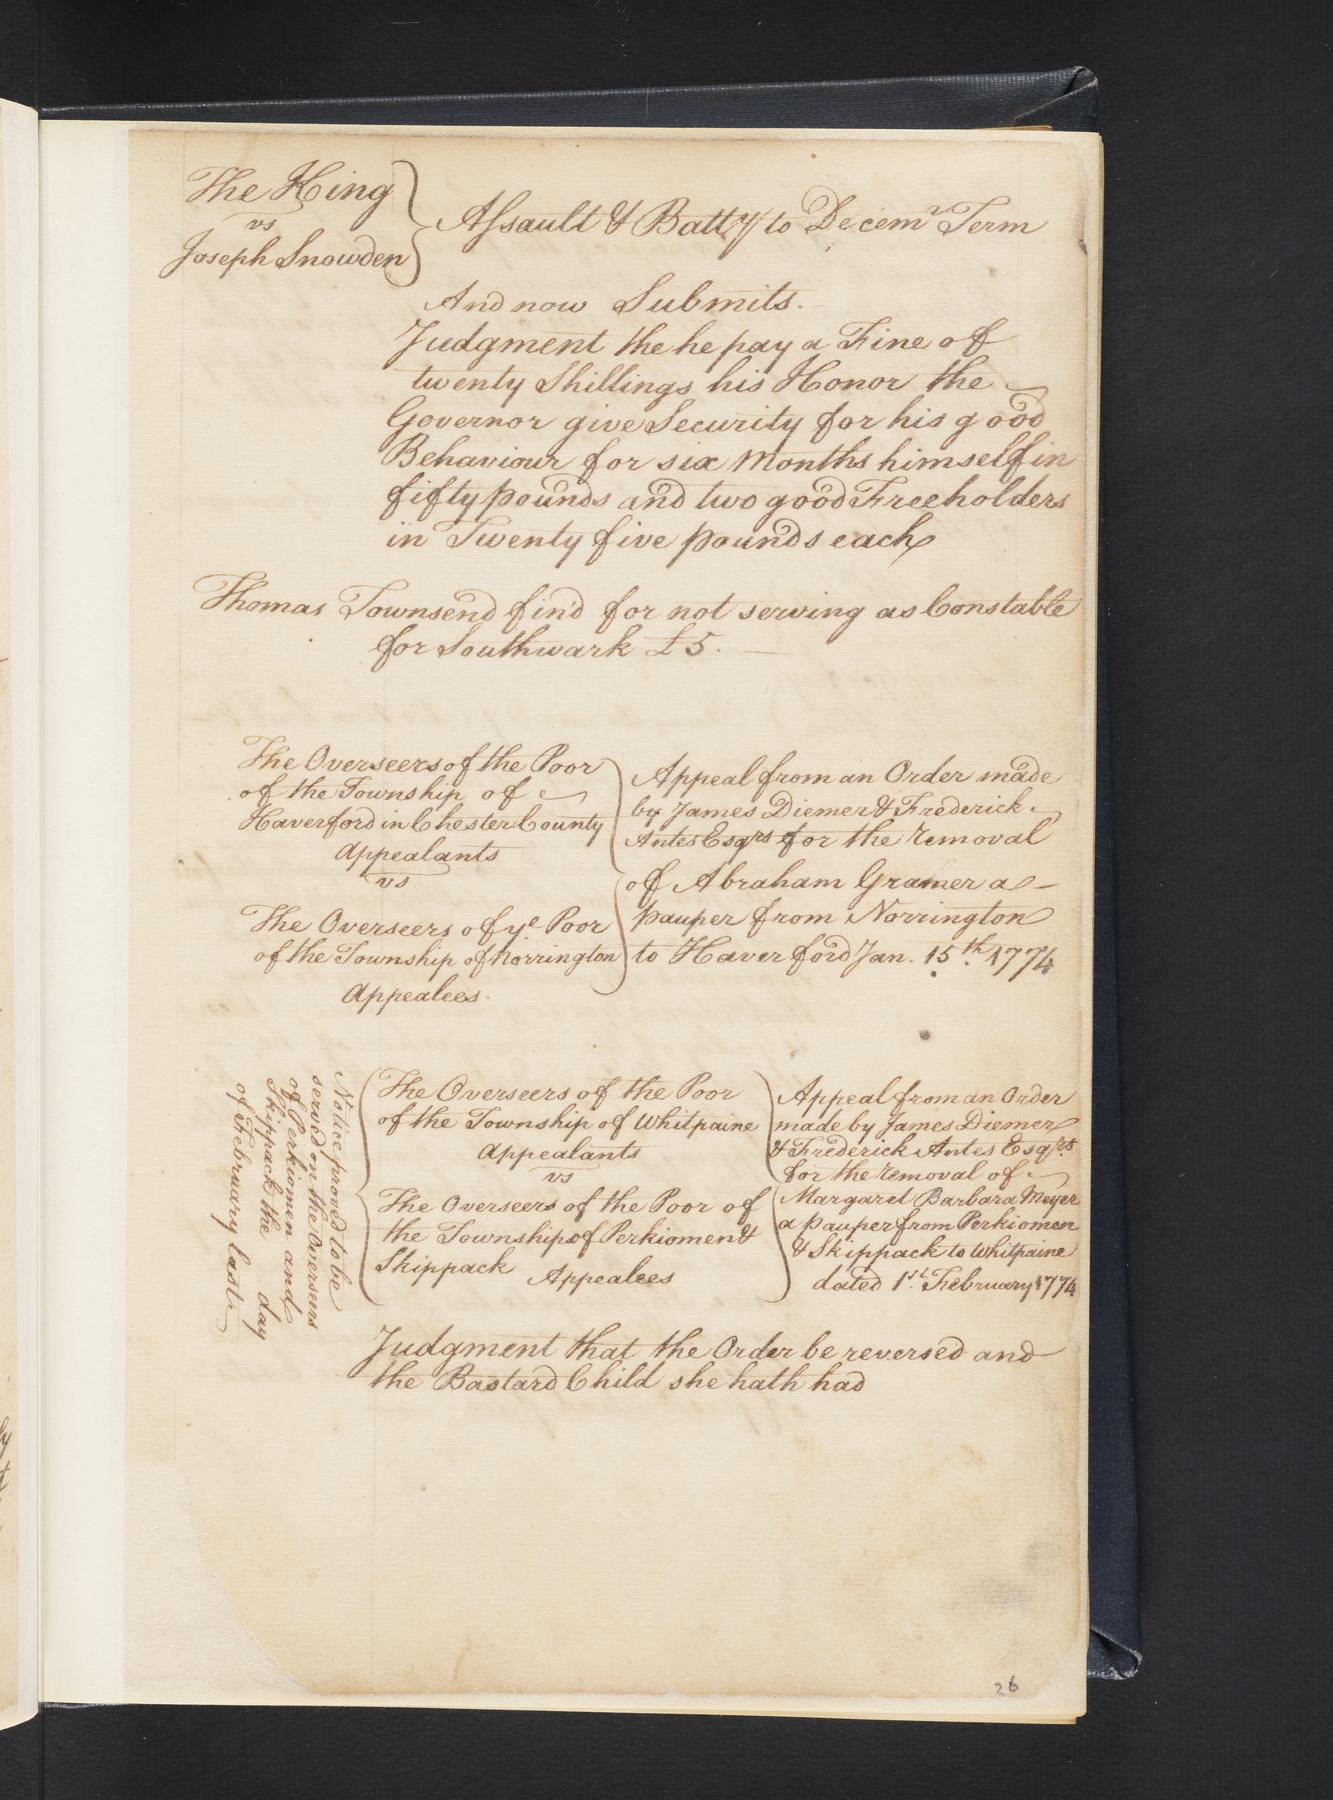 The King
vs
Joseph Snowden
Assault & Batty to Decemr Term
And now Submits.
Judgment the he pay a Fine of
twenty Shillings his Honor the
Governor give Security for his good
Behaviour for six Months himself in
fifty pounds and two good Freeholders
in Twenty five pounds each
Thomas Townsend fin'd for not serving as Constable
for Southwark £5.
The Overseers of the Poor
of the Township of
Haverford in Chester County
Appealants
vs
The Overseers of ye Poor
of the Township of Norrington
Appealees.
Appeal from an Order made
by James Diemer & Frederick
Antes Esqrs for the removal
of Abraham Gramer a
pauper from Norrington
to Haverford Jan. 15th 1774
Notice proved to be
served on the Overseers
of Perkiomen and
Skippack the day
of February last
The Overseers of the Poor
of the Township of Whitpaine
Appealants
vs
The Overseers of the Poor of
the Townships of Perkiomen &
Skippack Appealees
Appeal from an Order
made by James Diemer
& Frederick Antes Esqrs
for the removal of
Margaret Barbara Meyer
a pauper from Perkiomen
& Skippack to Whitpaine
dated 1st February 1774
Judgment that the Order be reversed and
the Bastard Child she hath had
26